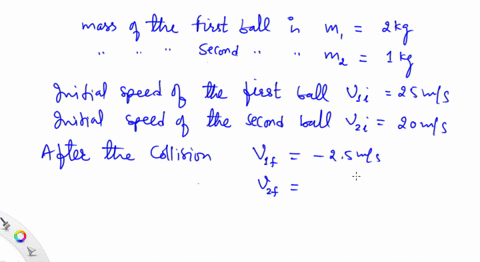 mass of the first ball is m₁ = 2 kg
" " " Second " " m₂ = 1 kg
Initial speed of the first ball V₁ᵢ = 25 m/s
Initial speed of the second ball V₂ᵢ = 20 m/s
After the Collision V₁f = -2.5 m/s
V₂f =